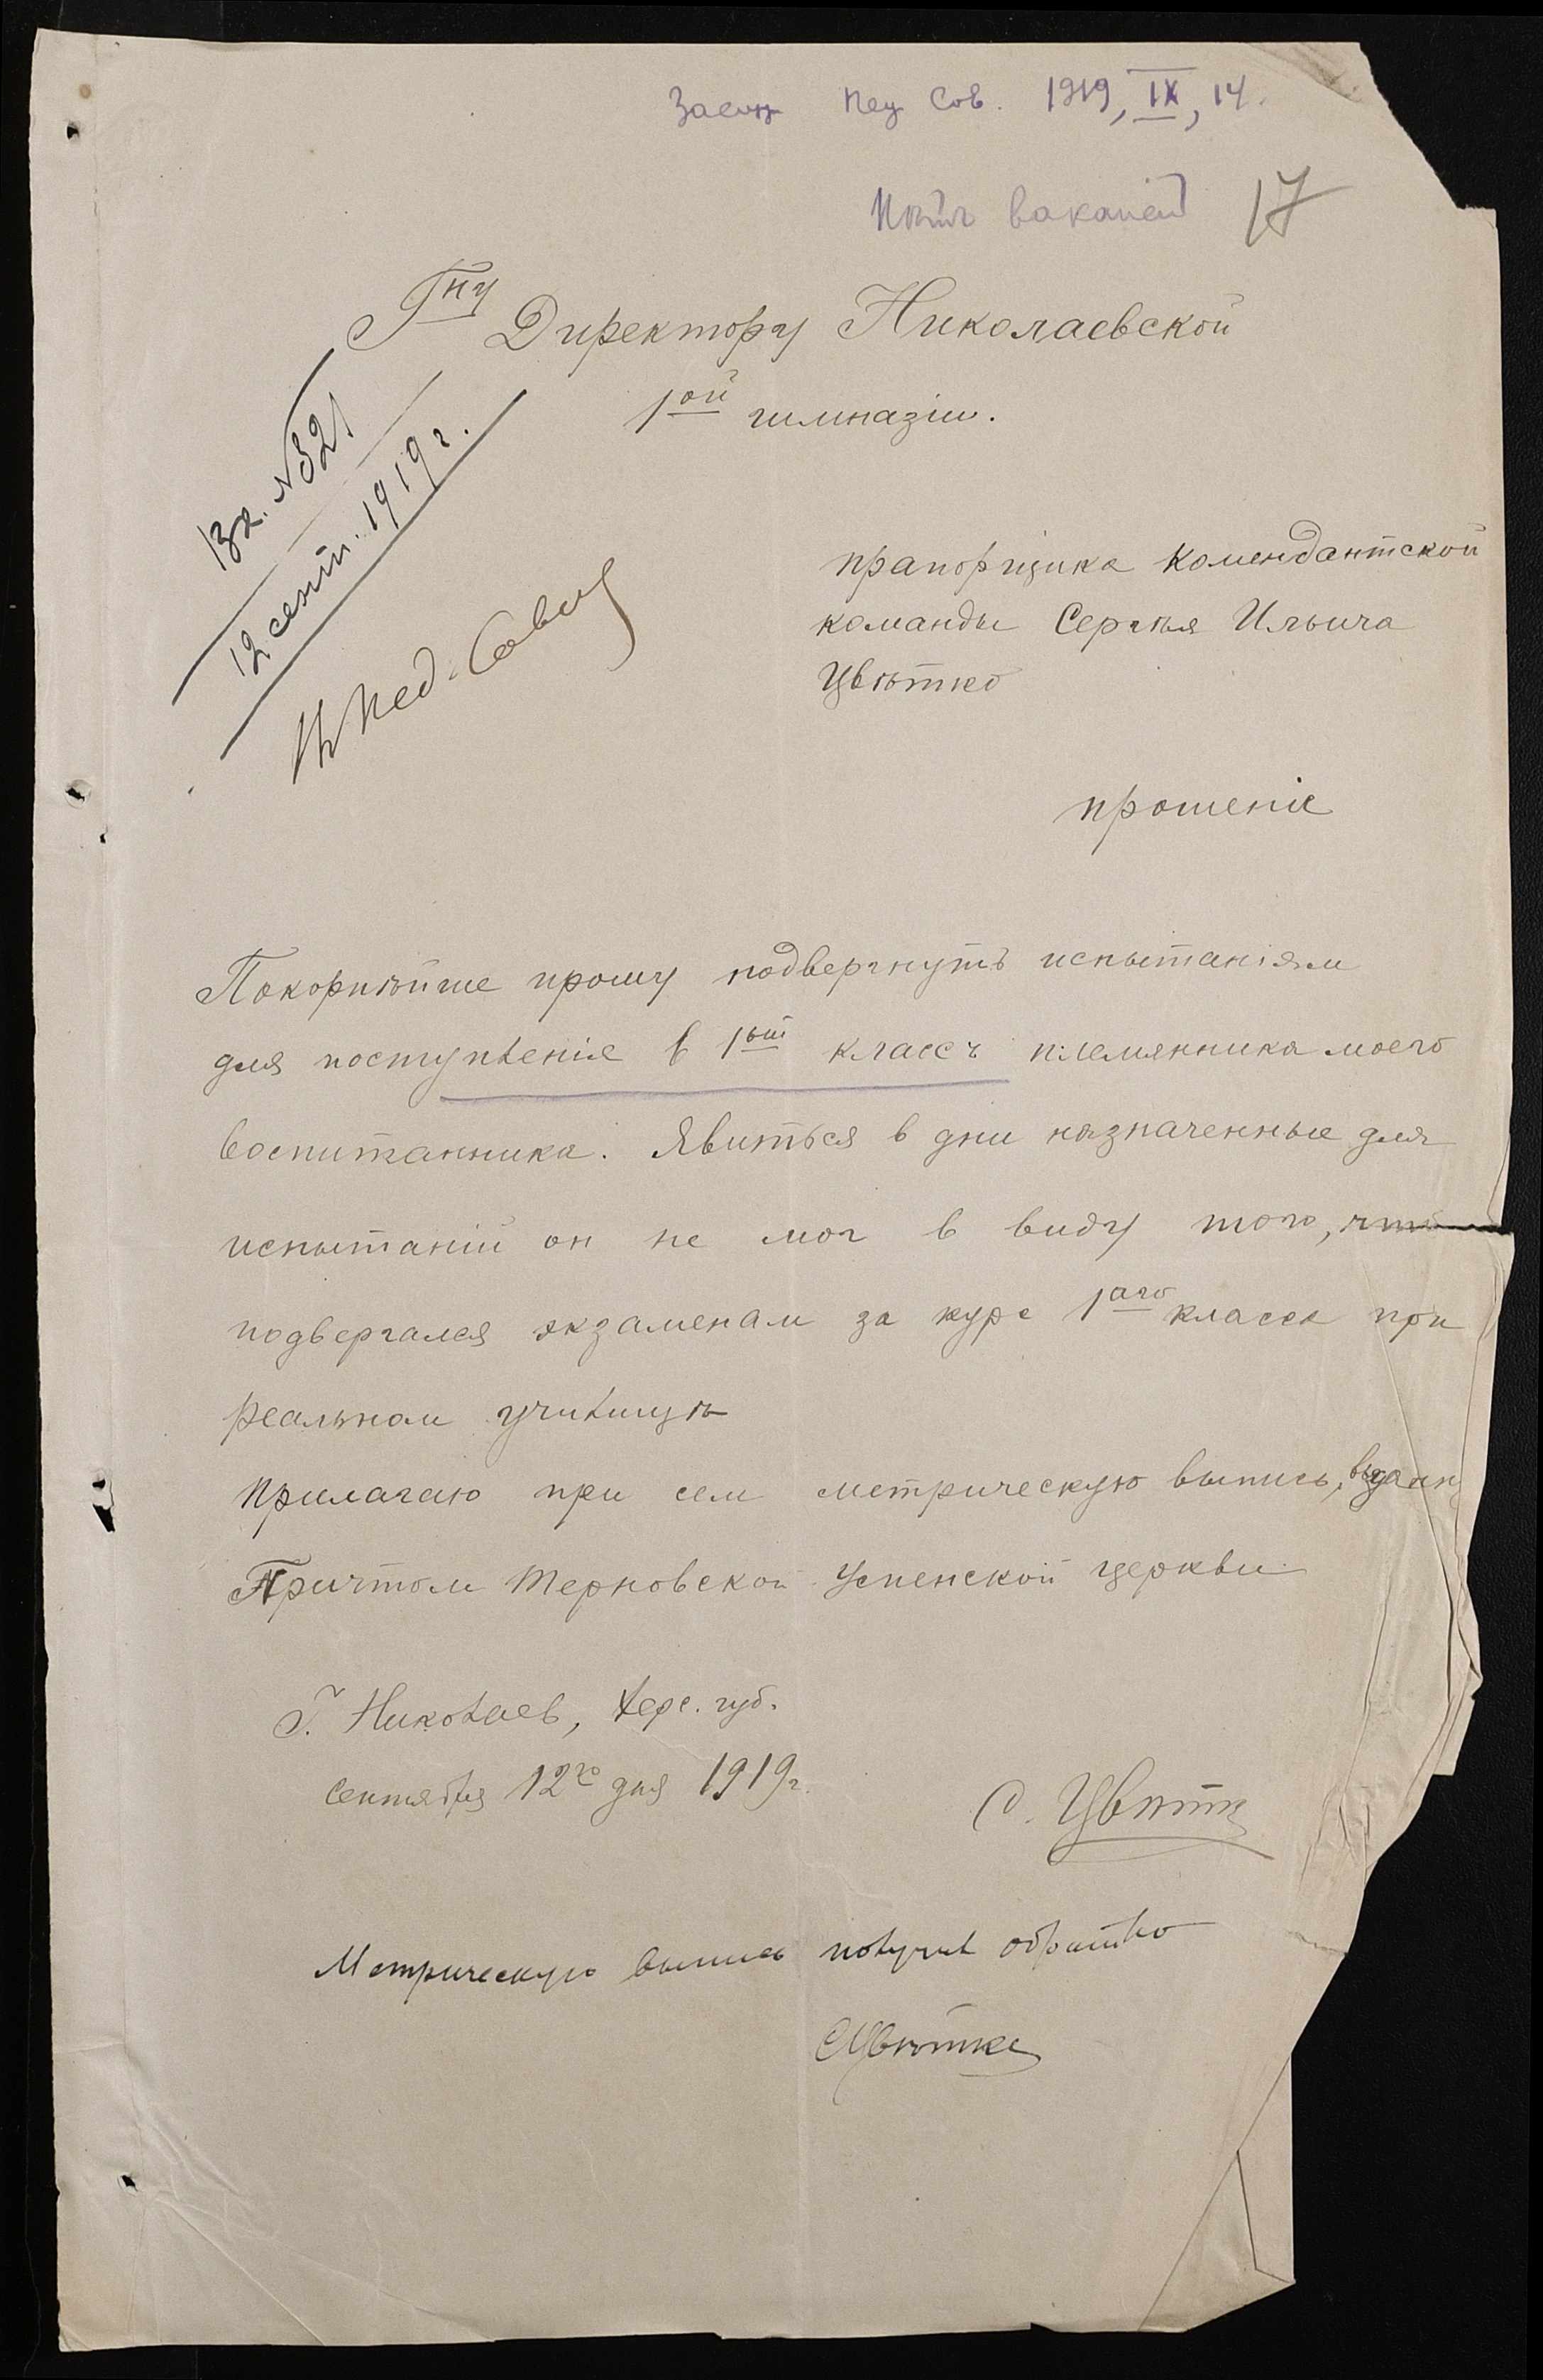 Засѣд Пед Сов. 1919, IX, 14.
Нѣтъ вакансій 17
Гну Директору Николаевской
1ой гимназіи.
Вх. № 321
12 сент. 1919 г.
Въ Пед. Совѣт
прапорщика Комендантской
команды Сергѣя Ильича
Цвѣтко
прошеніе
Покорнѣйше прошу подвергнуть испытаніям
для поступленія в 1ый классъ племянника моего
воспитанника. Явиться в дни назначенные для
испытаній он не мог в виду того, что
подвергался экзаменам за курс 1аго класса при
реальном училищѣ
Прилагаю при сем метрическую выпись, выданн
Причтом Терновской Успенской церкви
Г. Николаев, Херс. губ.
сентября 12го дня 1919 г.
С. Цвѣтко
Метрическую выпись получил обратно
СЦвѣтко